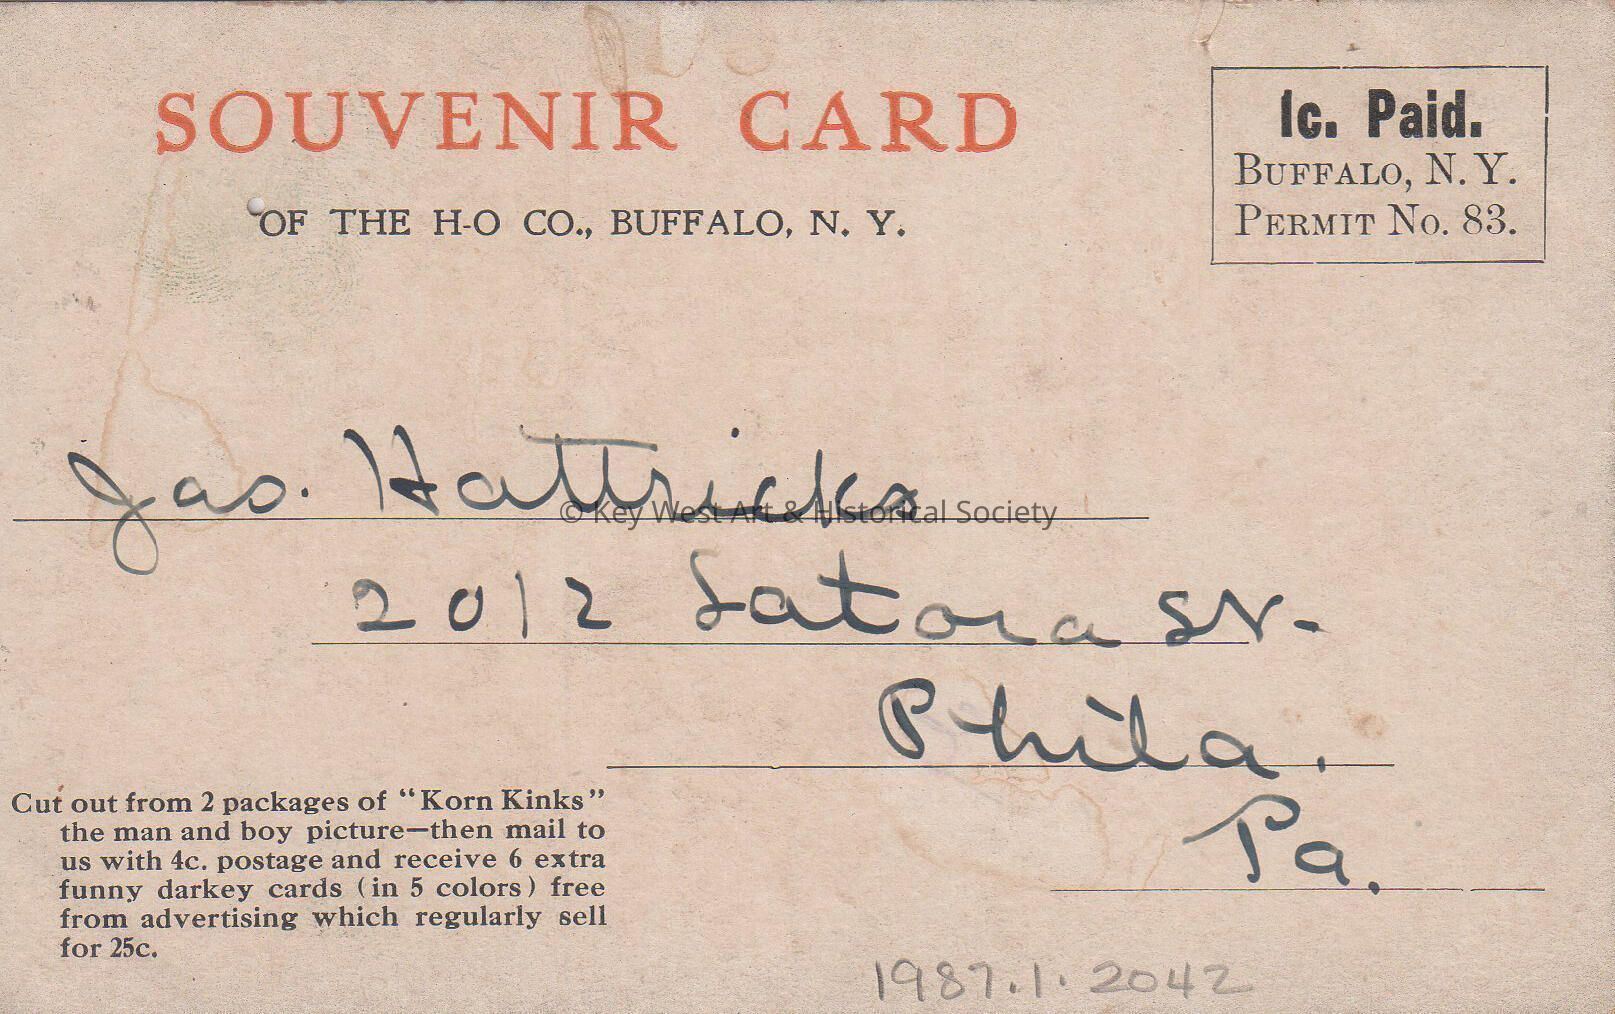 SOUVENIR CARD
OF THE H-O CO., BUFFALO, N. Y.
1c. Paid.
BUFFALO, N. Y.
PERMIT No. 83.
Jas. Hattricks
© Key West Art & Historical Society
2012 Latona St.
Phila.
Pa.
Cut out from 2 packages of “Korn Kinks”
the man and boy picture—then mail to
us with 4c. postage and receive 6 extra
funny darkey cards (in 5 colors) free
from advertising which regularly sell
for 25c.
1987.1.2042